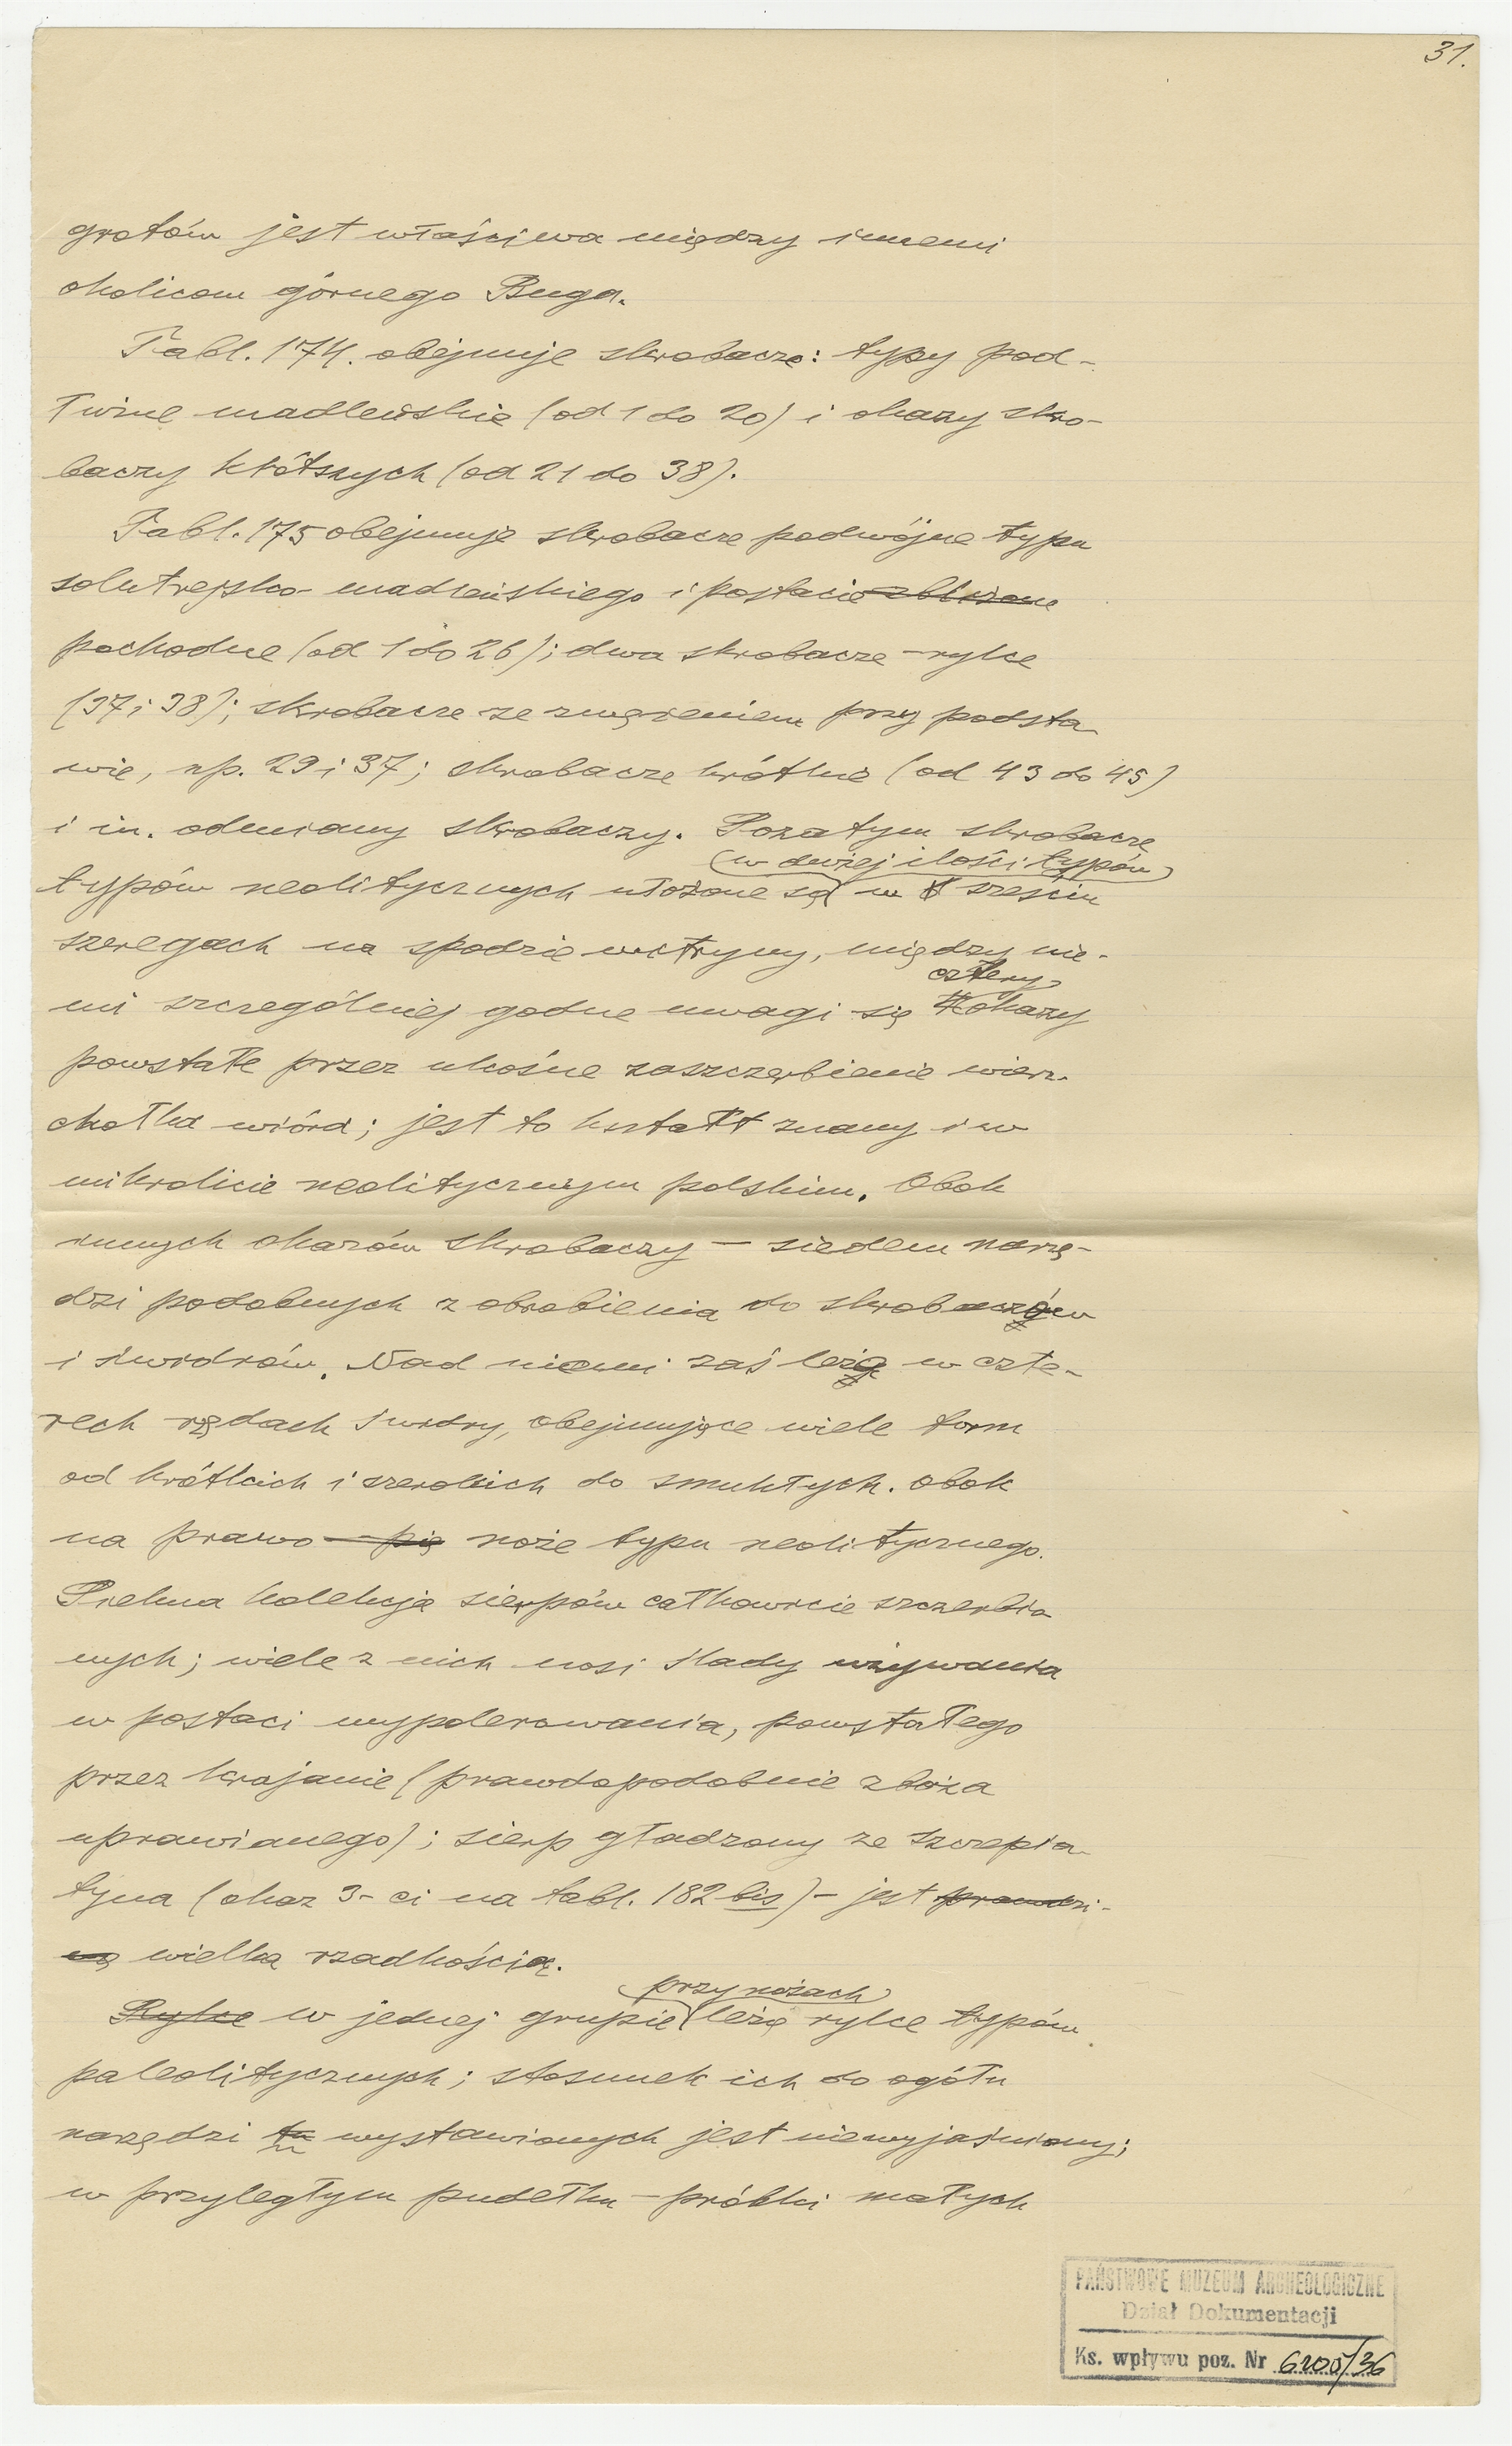 31.
grotów jest właściwa między innemi
okolicom górnego Buga.
Tabl. 174. obejmuje skrobacze: typy pod-
łużne madleńskie (od 1 do 20) i okazy skro-
baczy krótszych (od 21 do 38).
Tabl. 175 obejmuje skrobacze podwójne typu
solutrejsko-madleńskiego i postacie zbliżone
pochodne (od 1 do 26); dwa skrobacze-rylce
(37 i 38); skrobacze ze zwężeniem przy podsta-
wie, np. 29 i 37; skrobacze krótkie (od 43 do 45)
i in. odmiany skrobaczy. Pozatym skrobacze
(w dużej ilości typów)
typów neolitycznych ułożone są w sześciu
szeregach na spodzie witryny, między nie-
cztery
mi szczególniej godne uwagi są okazy
powstałe przez ukośne zaszczerbienie wierz-
chołka wióra; jest to kształt znany i w
mikrolicie neolitycznym polskim. Obok
innych okazów skrobaczy – siedem narzę-
dzi podobnych z obrobienia do skrobaczów
i świdrów. Nad niemi zaś leżą w czte-
rech rzędach świdry, obejmujące wiele form
od krótkich i szerokich do smukłych. Obok
na prawo – pię noże typu neolitycznego.
Piękna kolekcja sierpów całkowicie szczerbio-
nych; wiele z nich nosi ślady używania
w postaci wypolerowania, powstałego
przez krajanie (prawdopodobnie zboża
uprawianego); sierp gładzony ze Szczepia-
tyna (okaz 3-ci na tabl. 182 bis) – jest prawdzi-
wą wielką rzadkością.
przy nożach
Rylce w jednej grupie leżą rylce typów
paleolitycznych; stosunek ich do ogółu
narzędzi tu wystawionych jest niewyjaśniony;
w przyległym pudełku – próbki małych
PAŃSTWOWE MUZEUM ARCHEOLOGICZNE
Dział Dokumentacji
Ks. wpływu poz. Nr 6200/36